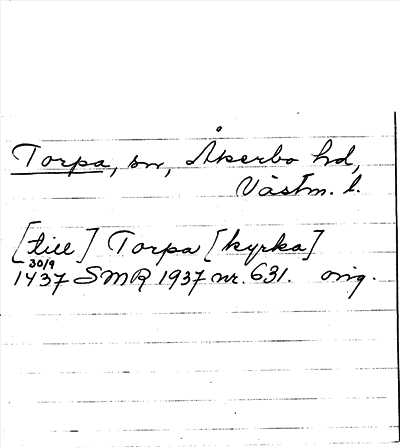 Torpa, sn, Åkerbo hd,
Västm. l.
[till] Torpa [kyrka]
30/9
1437 SMR 1937 nr. 631. orig.